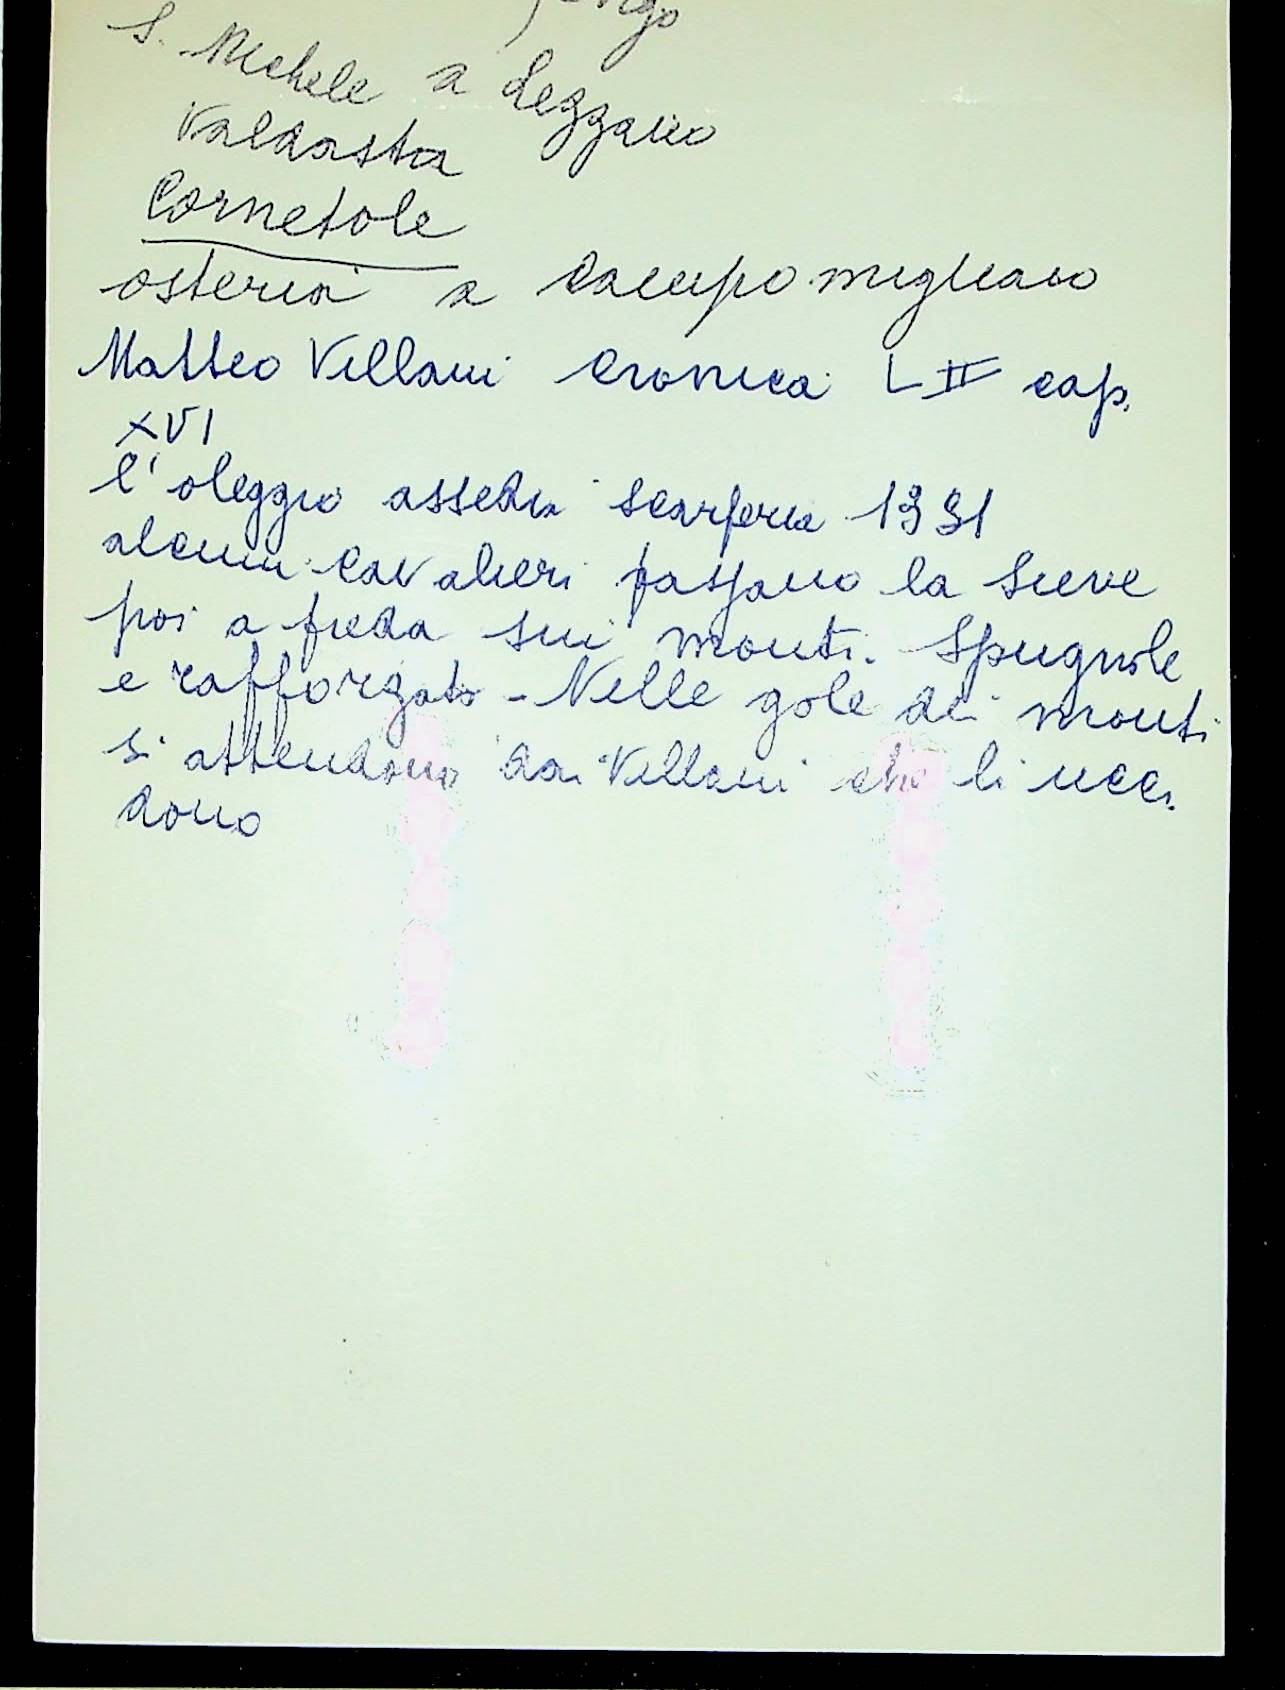 S. Michele a Lezzano
Valdastra
Cornetole
osteria a Campomigliaio
Matteo Villani Cronica L II cap.
XVI
l'oleggio assedia Scarperia 1351
alcuni cavalieri passano la Sieve
poi a piedi sui monti. Spugnole
e rafforzato - Nelle gole dei monti
si attendono dai Villani che li ucci
dono